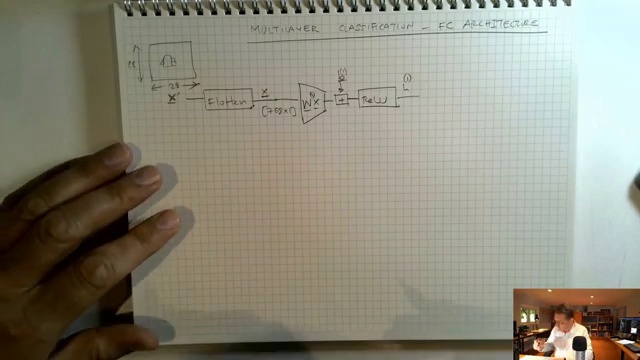 MULTILAYER CLASSIFICATION - FC ARCHITECTURE
28
28
X' Flatten x W(1) x + b(1) ReLU L(1)
[768x1]